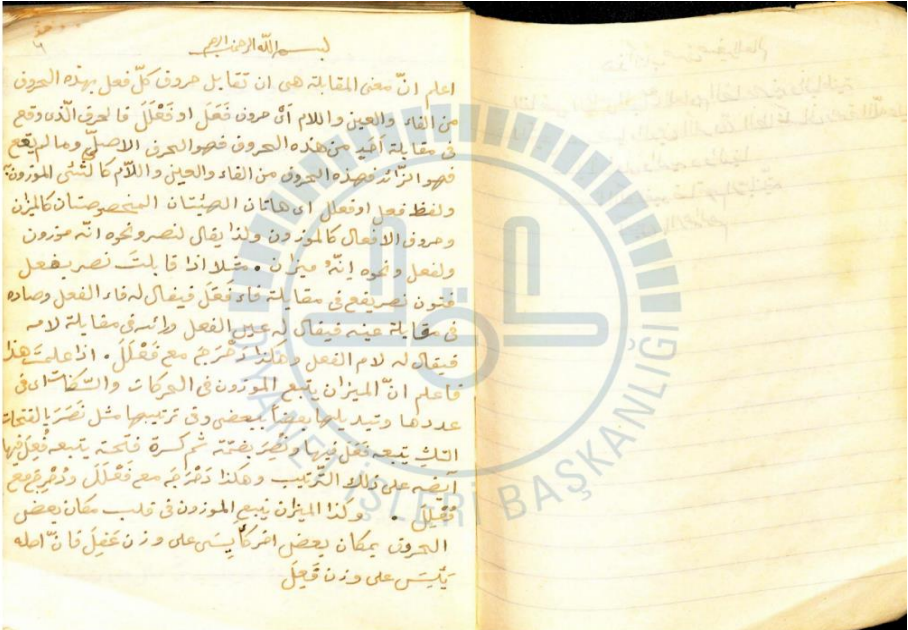 بسم الله الرحمن الرحيم
اعلم انّ معنى المقابلة هى ان تقابل حروف كلّ فعل بهذه الحروف
من الفاء والعين واللام اىْ حروف فَعَلَ او فَعْلَلَ فالحرف الّذى وقع
فى مقابلة اَحَدٍ من هذه الحروف فهو الحرف الاصلىّ وما لم يقع
فهو الزّائد فهذه الحروف من الفاء والعين واللاّم كالشّئ الموزون
ولفظ فعل او فعلل اى هاتان الصيغتان المخصوصتان كالميزان
وحروف الافعال كالموزون ولذا يقال لنصر ونحوه انّه موزون
ولفعل ونحوه انّهُ ميزان . مثلا اذا قابلتَ نصر بفعل
فنون نصر يقع فى مقابلة فاء فَعَلَ فيقال له فاء الفعل وصاده
فى مقابلة عينه فيقال له عين الفعل ورائه فى مقابلة لامه
فيقال له لام الفعل وهكذا دَحْرَجَ مع فَعْلَلَ . اذا علمتَ هذا
فاعلم انّ الميزان يتبع الموزون فى الحركات والسّكنات اى فى
عددها وتبديلها بعضاً ببعض وفى ترتيبها مثل نَصَرَ بالفتحات
الثلث يتبعه فَعَلَ فيها ونُصِرَ بضمّة ثم كسرة فتحة يتبعه فُعِلَ فيها
ايضه على ذلك الترتيب وهكذا دَحْرَجَ مع فَعْلَلَ ودُحْرِجَ مع
فُعْلِلَ . وكذا الميزان يتبع الموزون فى قلب مكان بعض
الحروف بمكان بعض اخر كاَيِسَ على وزن عَفِلَ فانّ اصله
يَئِسَ على وزن فَعِلَ
DİYANET İŞLERİ BAŞKANLIĞI